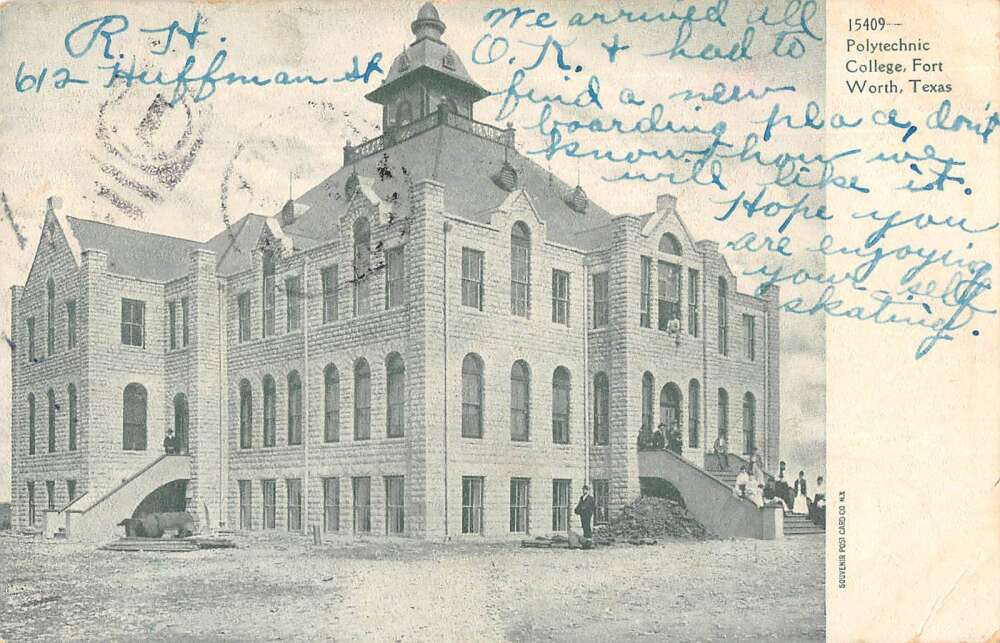 R. H.
612 Huffman St
We arrived all
O.K. & had to
find a new
boarding place, don't
know how we
will like it.
Hope you
are enjoying
your self
skating.
15409--
Polytechnic
College, Fort
Worth, Texas
SOUVENIR POST CARD CO N.Y.